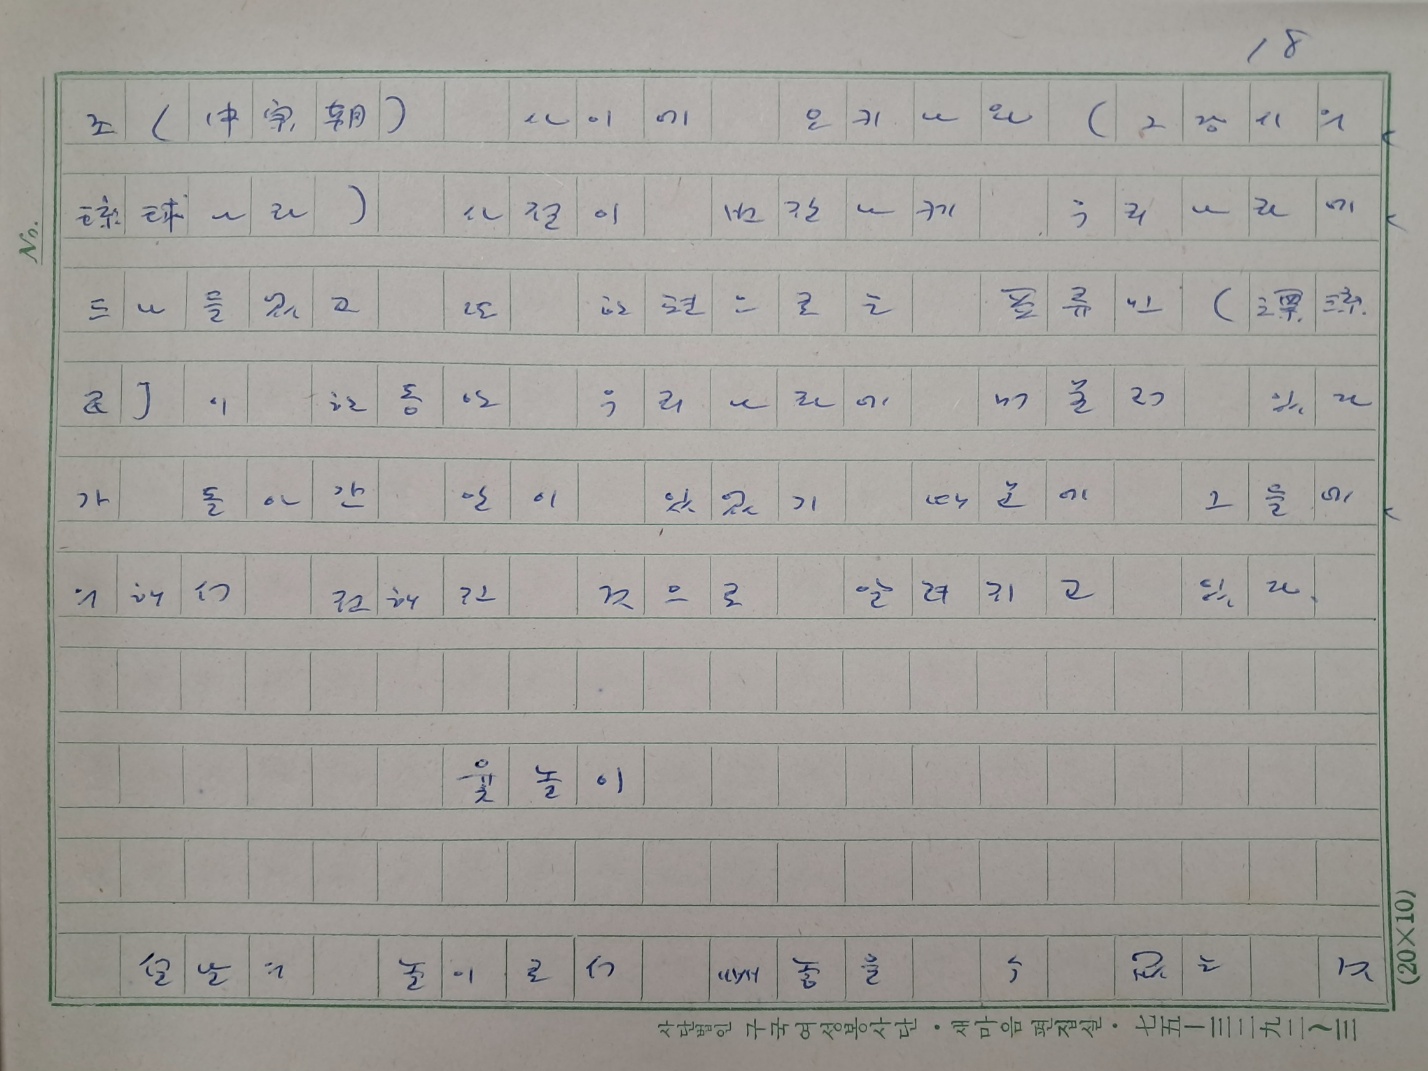 18
조(中宗朝) 사이에 오키나와(그 당시의
琉球나라) 사절이 번갈나게 우리나라에
드나들었고 또 한편으로는 표류민(漂流
民)이 한동안 우리나라에 머물러 있다
가 돌아간 일이 있었기 때문에 그들에
의해서 전해진 것으로 알려지고 있다.
윷놀이
설날의 놀이로서 빼놓을 수 없는 것
No.
(20×10)
사단법인 구국여성봉사단·새마음편집실·七五一三三九二~三